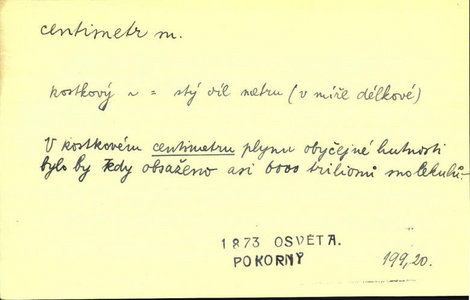 centimetr m.
kostkový ~ = stý díl metru (v míře délkové)
V kostkovém centimetru plynu obyčejné hutnosti
bylo by tedy obsaženo asi 6000 trilionů molekulů.-
1873 OSVĚTA.
POKORNÝ
199,20.